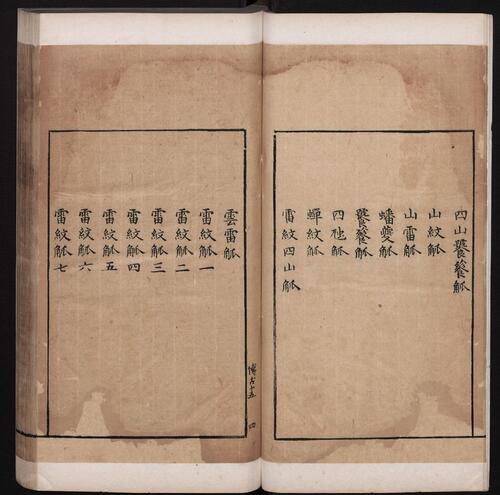 四山饕餮觚
山紋觚
山雷觚
蟠夔觚
饕餮觚
四虵觚
蟬紋觚
雷紋四山觚
雲雷觚
雷紋觚一
雷紋觚二
雷紋觚三
雷紋觚四
雷紋觚五
雷紋觚六
雷紋觚七
博古十五
四